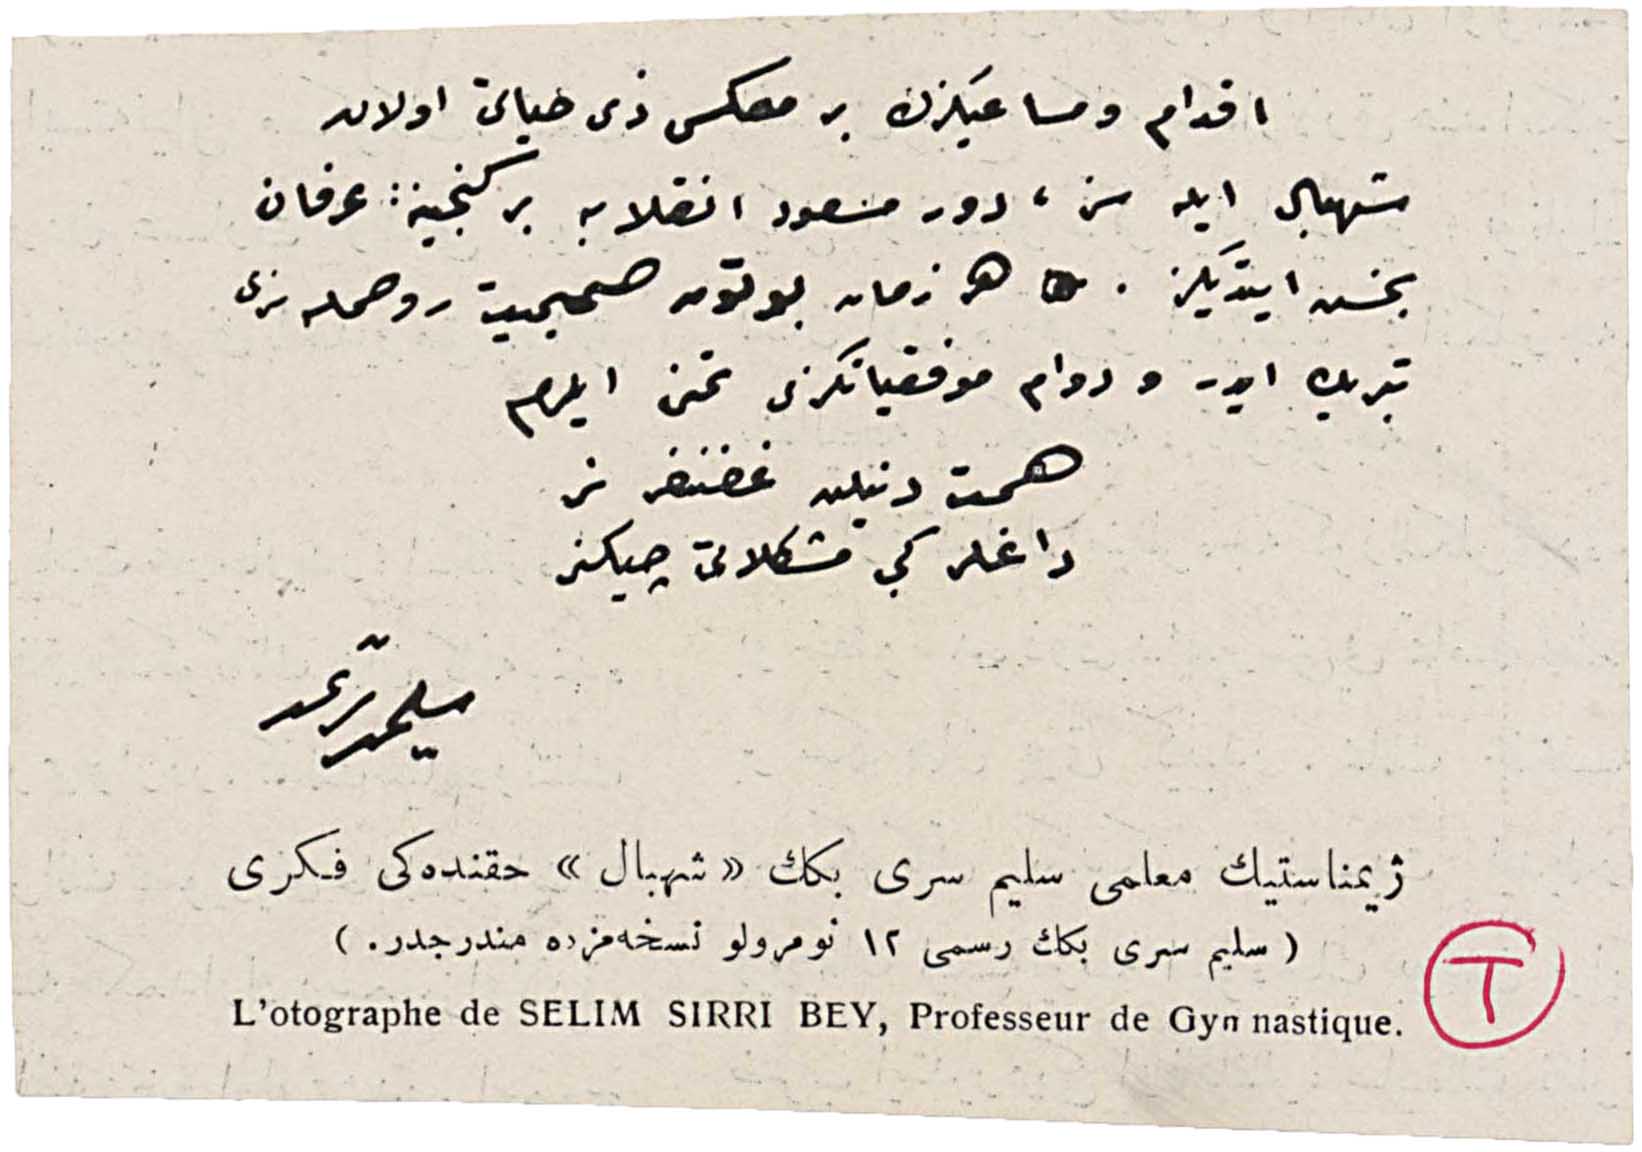 اقدام و مساعیكزك بر معكس ذی حیاتی اولان
شهبال ایله سز ، دور مسعود انقلابه بر گنجینهٔ عرفان
بخش ایتدیكز . هر زمان بوتون صمیمیت روحمله سزی
تبریك ایدر و دوام موفقیاتكزی تمنی ایلرم
همت دنیلن غضنفر
داغلر كبی مشكلاتی چیكنر
سلیم سری
ژیمناستیك معلمی سلیم سری بكك «شهبال» حقنده‌كی فكری
( سلیم سری بكك رسمی ۱۲ نومرولو نسخه‌مزده مندرجدر . )
L'otographe de SELIM SIRRI BEY, Professeur de Gyn nastique.
T